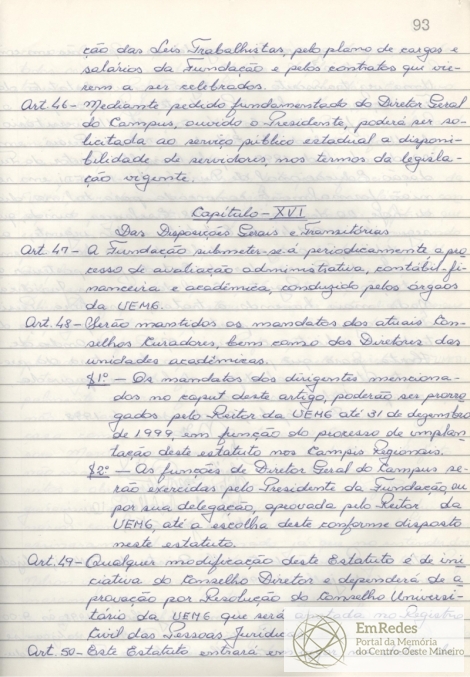 93
ção das Leis Trabalhistas, pelo plano de cargos e
salários da Fundação e pelos contratos que vie-
rem a ser celebrados.
Art. 46 - Mediante pedido fundamentado do Diretor Geral
do Campus, ouvido o Presidente, poderá ser so-
licitada ao serviço público estadual a disponi-
bilidade de servidores, nos termos da legisla-
ção vigente.
Capítulo - XVI
Das Disposições Gerais e Transitórias
Art. 47 - A Fundação submeter-se-á periodicamente a pro
cesso de avaliação administrativa, contábil-fi-
nanceira e acadêmica, conduzido pelos órgãos
da UEMG.
Art. 48 - Serão mantidos os mandatos dos atuais Con-
selhos Curadores, bem como dos Diretores das
unidades acadêmicas.
§1º - Os mandatos dos dirigentes menciona-
dos no caput deste artigo, poderão ser prorro
gados pelo Reitor da UEMG até 31 de dezembro
de 1999, em função do processo de implan
tação deste estatuto nos Campis Regionais.
§2º - As funções de Diretor Geral do Campus se-
rão exercidas pelo Presidente da Fundação, ou
por sua delegação, aprovada pelo Reitor da
UEMG, até a escolha deste conforme disposto
neste estatuto.
Art. 49 - Qualquer modificação deste Estatuto é de ini
ciativa do Conselho Diretor e dependerá de a
provação por Resolução do Conselho Universi-
tário da UEMG que será no Registro
Civil das Pessoas
Art. 50 - Este Estatuto entrará
EmRedes
Portal da Memória
do Centro-Oeste Mineiro